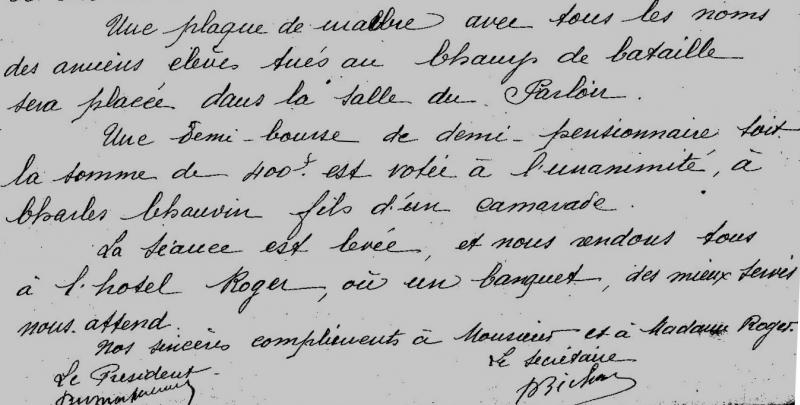 Une plaque de malbre avec tous les noms
des anciens élèves tués au Champ de bataille
sera placée dans la salle du Parloir.
Une demi-bourse de demi-pensionnaire soit
la somme de 400f. est votée à l'unanimité, à
Charles Chauvin fils d'un camarade.
La séance est levée, et nous rendons tous
à l'hotel Roger, où un banquet, des mieux servis
nous attend.
Nos sincères compliments à Monsieur et à Madame Roger.
Le secrétaire
Le President